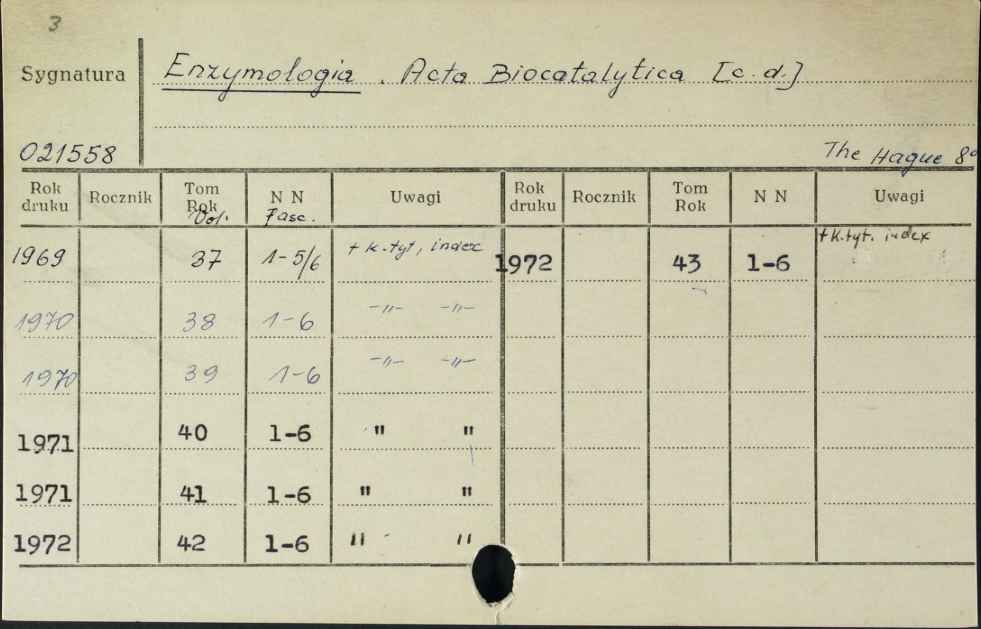 3
Sygnatura Enzymologia . Acta Biocatalytica [c. d.]
021558 The Hague 8°
Rok druku Rocznik Tom Rok Vol. N N Fasc. Uwagi Rok druku Rocznik Tom Rok N N Uwagi
1969 37 1-5/6 + k. tyt, index 1972 43 1-6 + k. tyt. index
1970 38 1-6 -"- -"-
1970 39 1-6 -"- -"-
1971 40 1-6 " "
1971 41 1-6 " "
1972 42 1-6 " "